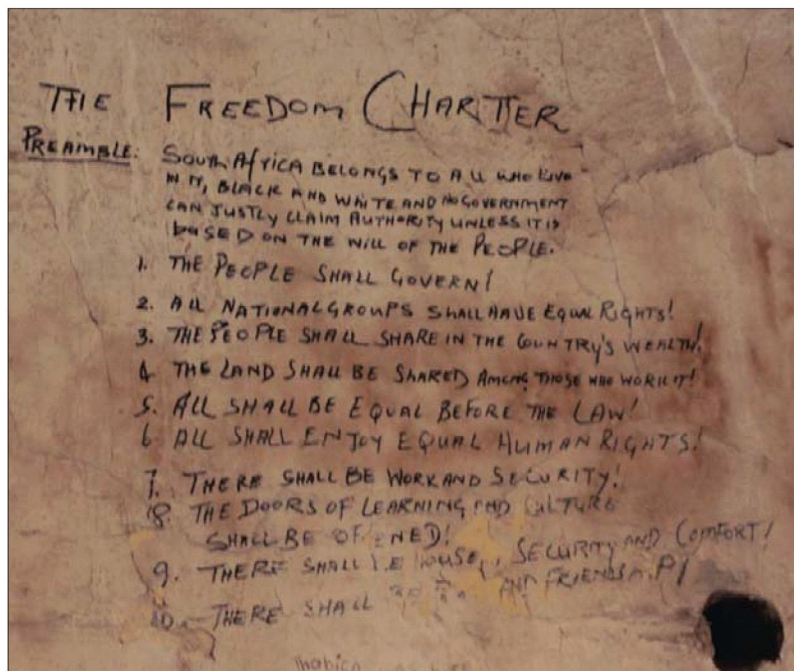 THE FREEDOM CHARTTER
PREAMBLE: SOUTH AfricA BELONGS TO All WHO LIVE
IN IT, BLACK AND WHITE AND NO GOVERNMENT
CAN JUSTLY CLAIM AUTHORITY UNLESS IT IS
bASED ON THE WILL OF THE PEOPLE.
1. THE PEOPLE SHALL GOVERN!
2. All NATIONAL GROUPS SHALL HAVE EQUAL RIGHTS!
3. THE PEOPLE SHALL SHARE IN THE COUNTRY'S WEALTH!
4 THE LAND SHALL BE SHARED AMONG THOSE WHO WORK IT!
5. ALL SHALL BE EQUAL BEFORE THE LAW!
6 ALL SHALL ENJOY EQUAL HUMAN RIGHTS!
7. THERE SHALL BE WORK AND SECURITY!
8. THE DOORS OF LEARNING AND CULTURE
SHALL BE OPENED!
9. THERE SHALL BE HOUSES, SECURITY AND COMFORT!
10. THERE SHALL BE AND FRIENDSHIP!